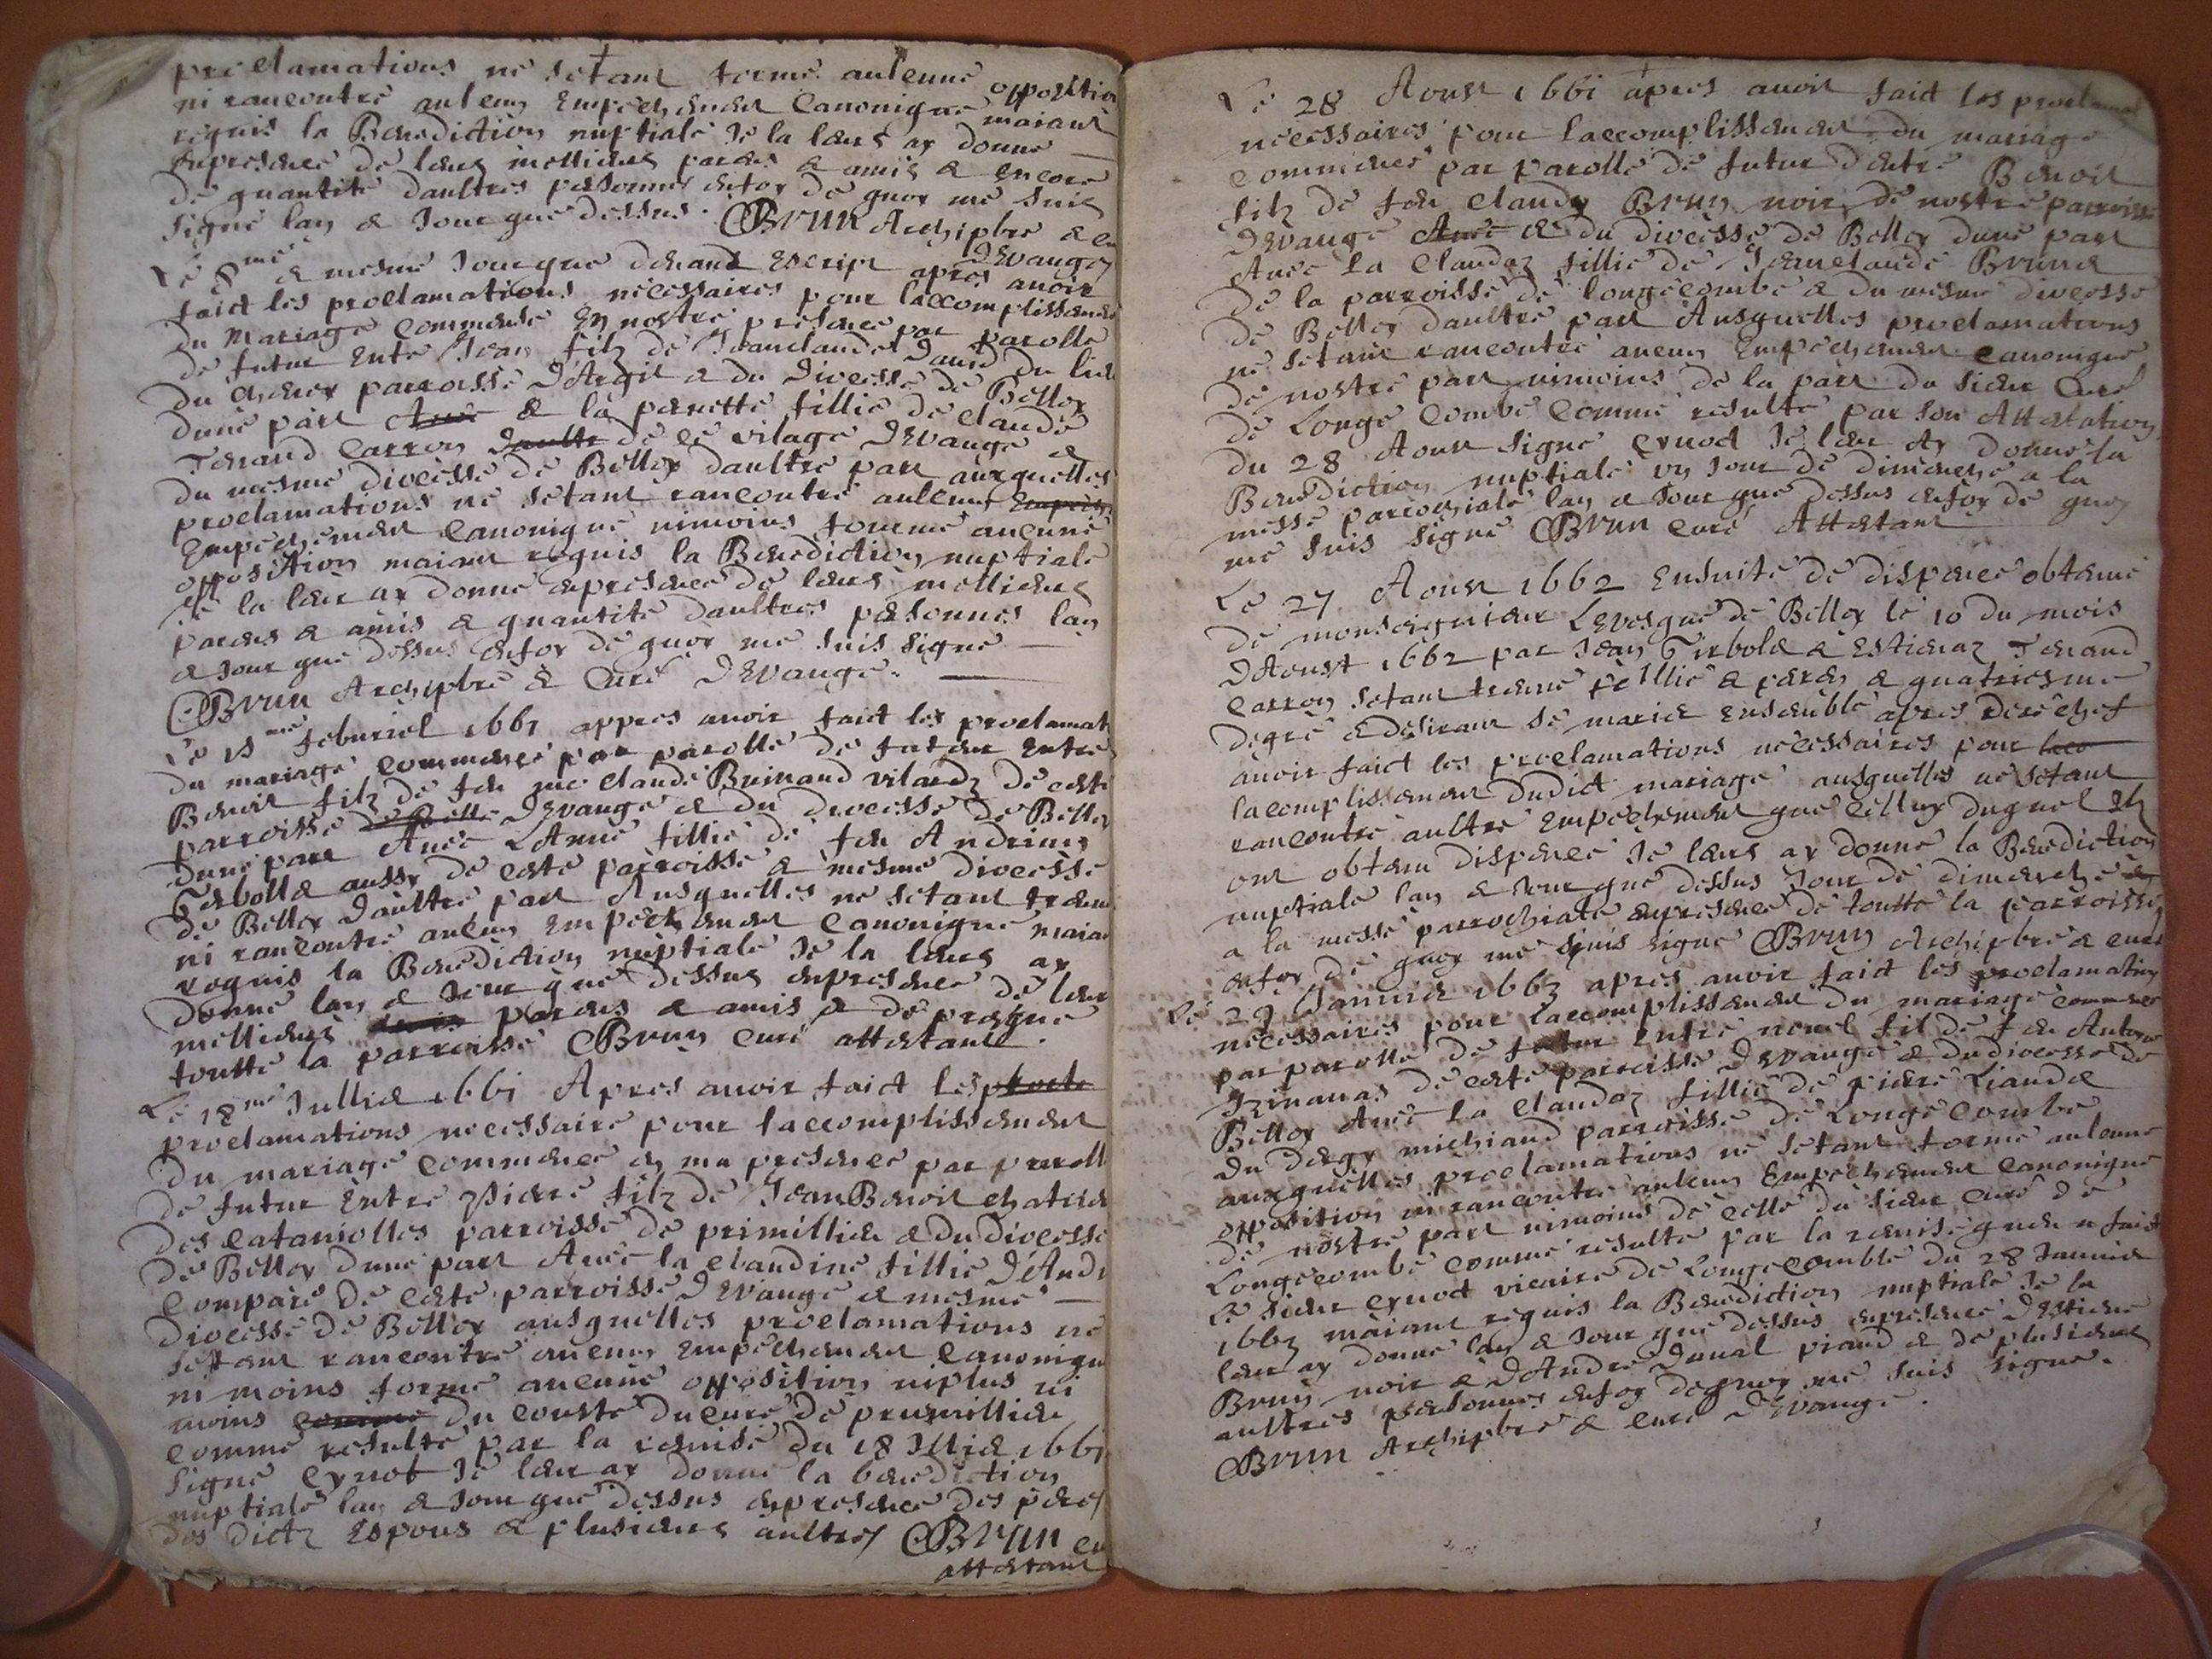 proclamations ne sétant formé aulcune opposition
ni rancontré aulcun Empeschement Canonique maiant
requis la Benediction nuptiale Je la leurs ay donné
en presence de leurs mellieurs parens & amis & encore
de quantité daultres personnes en foy de quoy me suis
signé lan & Jour que dessus. Brun Archipbre & cu
DEvanges
Le 8me & mesme Jour que devant Escript apres avoir
faict les proclamations necessaires pour laccomplissement
du Mariage Commencé En nostre presence par parolle
de futur Entre Jean filz de Jeanclaude David du lieu
du chenex parroisse DArgit & du Divcesse de Belley
dune part Avec & la perrette fillie de claude
Tenand Carron daultre de ce vilage DEvange &
du mesme divcesse de Belley daultre part auxquelles
proclamations ne sétant rancontré aulcun Empesch
Empeschement Canonique nimoins formé aucune
opposition maiant requis la Benediction nuptiale
Je la leur ay donné en presence de leurs mellieurs
parens & amis & quantité daultres personnes lan
& Jour que dessus en foy de quoy me suis signé
Brun Archipbre & Curé DEvange.
Le 15me feburier 1661 appres avoir faict les proclamat
du mariage commencé par parolle de futur Entre
Benoit filz de feu me claude Brinand vilardz de ceste
parroisse de Belle DEvange & du divcesse de Belley
dune part Avec LAnne fillie de feu Andrieu
Gerbolla aussy de ceste parroisse & mesme divcesse
de Belley daultre part Ausquelles ne sétant treuvé
ni rancontré aulcun Empeschement Canonique maiant
requis la Benediction nuptiale Je la leurs ay
donné lan & Jour que dessus en presence de leur
mellieurs amis parens & amis & de presque
toutte la parroisse Brun curé attestant.
Le 18me Jullie 1661 Apres avoir faict les procla
proclamations necessaire pour laccomplissement
du mariage commencé en ma presence par parolle
de futur Entre Pierre filz de JeanBenoit chatter
des cataniolles parroisse de primillieu & du divcesse
de Belley dune part Avec la claudine fillie dAnd
Compare de ceste parroisse DEvange & mesme
divcesse de Belley ausquelles proclamations ne
sétant rancontré aucun Empeschement Canonique
ni moins formé aucune opposition niplus ni
moins comme du couste du curé de prumillieu
comme resulte par la remise du 18 Jllie 1661
signé cynot Je leur ay donné la benediction
nuptiale lan & Jour que dessus en presence des peres
des dictz Espous & plusieurs aultres Brun cu
attestant
Le 28 Aoust 1661 apres avoir faict les proclamat
necessaires pour laccomplissement du mariage
commencé par parolle de futur dentre Benoit
filz de feu claudy Brun noir de nostre parroisse
DEvange Avec & du divcesse de Belley dune part
Avec La Claudaz fillie de Jeanclaude Brund
de la parroisse de longecombe & du mesme divcesse
de Belley daultre part Ausquelles proclamations
ne sétant rancontré aucun Empeschement canonique
de nostre part nimoins de la part du sieur Curé
de Longe Combe Comme resulte par son Attestation
du 28 Aoust signé cynod Je leur Ay donné la
Benediction nuptiale un Jour de dimenche a la
messe parrochiale lan & Jour que dessus en foy de quoy
me suis signé Brun curé Attestant
Le 27 Aoust 1662 Ensuite de dispence obtenue
de monseigneur Levesque de Belley le 10 du mois
dAoust 1662 par Jean Girbola & Estienaz Tenand
Carron sétant treuvé fillie & paren & quatriesme
degré & desirant se marier ensemble apres derechef
avoir faict les proclamations necessaires pour lacco
lacomplissement dudict mariage ausquelles ne sétant
rancontré aultre Empeschement que celluy duquel Ilz
ont obtenu dispence Je leurs ay donné la Benediction
nuptiale lan & Jour que dessus Jour de dimenche &
a la messe parrochiale en presence de toutte la parroisse
en foy de quoy me suis signé Brun Archipbre & curé
Le 29 Janvier 1663 apres avoir faict les proclamation
necessaires pour laccomplissement du mariage commencé
par parolle de futur Entre noel fil de feu Antoyne
de ceste parroisse DEvange & du divcesse de
Belley Avec la Claudaz fillie de pierre Liauda
du dergy michiaud parroisse de Longe Combe
auxquelles proclamations ne sétant formé aulcune
opposition ni rancontré aulcun Empeschement Canonique
de nostre part nimoins de celle du sieur curé de
Longecombe comme resulte par la remise quen a faict
Le sieur cynod vicaire de Longecombe du 28 Janvier
1663 maiant requis la Benediction nuptiale Je la
leur ay donné lan & Jour que dessus en presence dEstiene
Brun noir & dAndre Duval piaud & de plusieurs
aultres personnes en foy de quoy me suis signé.
Brun Archipbre & curé DEvange.